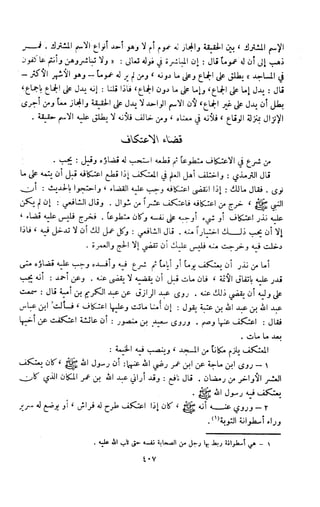 الإسم المشترك ، بين الحقيقة والمجاز له عموم أم لا وهو أحد أنواع الاسم المشترك . فمن
ذهب إلى أن له عموماً قال : إن المباشرة في قوله تعالى : « ولا تباشروهن وأنتم عاكفون
في المساجد » يطلق على الجماع وعلى ما دونه ، ومن لم ير له عموماً – وهو الأشهر الأكثر –
قال : يدل إما على الجماع وإما على ما دون الجماع ، فإذا قلنا : إنه يدل على الجماع بإجماع ،
بطل أن يدل على غير الجماع ، لأن الاسم الواحد لا يدل على الحقيقة والمجاز معاً ومن أجرى
الإنزال بمنزلة الوقاع ، فلأنه في معناه ، ومن خالف فلأنه لا يطلق عليه الاسم حقيقة .
قضاء الاعتكاف
من شرع في الاعتكاف متطوعاً ثم قطعه استحب له قضاؤه وقيل : يجب .
قال الترمذي : واختلف أهل العلم في المعتكف إذا قطع اعتكافه قبل أن يتمه على ما
نوى . فقال مالك : إذا انقضى اعتكافه وجب عليه القضاء ، واحتجوا بالحديث : أن
النبي ﷺ ، خرج من اعتكافه فاعتكف عشراً من شوال . وقال الشافعي : إن لم يكن
عليه نذر اعتكاف أو شيء أوجبه على نفسه وكان متطوعاً . فخرج فليس عليه قضاء ،
إلا أن يحب ذلك اختياراً منه . قال الشافعي : وكل عمل لك أن لا تدخل فيه ، فإذا
دخلت فيه وخرجت منه فليس عليك أن تقضي إلا الحج والعمرة .
أما من نذر أن يعتكف يوماً أو أياماً ثم شرع فيه وأفسده وجب عليه قضاؤه متى
قدر عليه باتفاق الأئمة ، فإن مات قبل أن يقضيه لا يقضى عنه . وعن أحمد : أنه يجب
على وليه أن يقضي ذلك عنه . روى عبد الرزاق عن عبد الكريم بن أمية قال : سمعت
عبد الله بن عبد الله بن عتبة يقول : إن أمنا ماتت وعليها اعتكاف ، فسألت ابن عباس
فقال : اعتكف عنها وصم . وروى سعيد بن منصور : أن عائشة اعتكفت عن أخيها
بعد ما مات .
المعتكف يلزم مكاناً من المسجد ، وينصب فيه الخيمة :
١ – روى ابن ماجة عن ابن عمر رضي الله عنهما : أن رسول الله ﷺ ، كان يعتكف
العشر الأواخر من رمضان . قال نافع : وقد أراني عبد الله بن عمر المكان الذي كان
يعتكف فيه رسول الله ﷺ .
٢ – وروي عنه أنه ﷺ ، كان إذا اعتكف طرح له فراش ، أو يوضع له سرير
وراء أسطوانة التوبة(١) .
١ – هي أسطوانة ربط بها رجل من الصحابة نفسه حتى تاب الله عليه .
٤٠٧